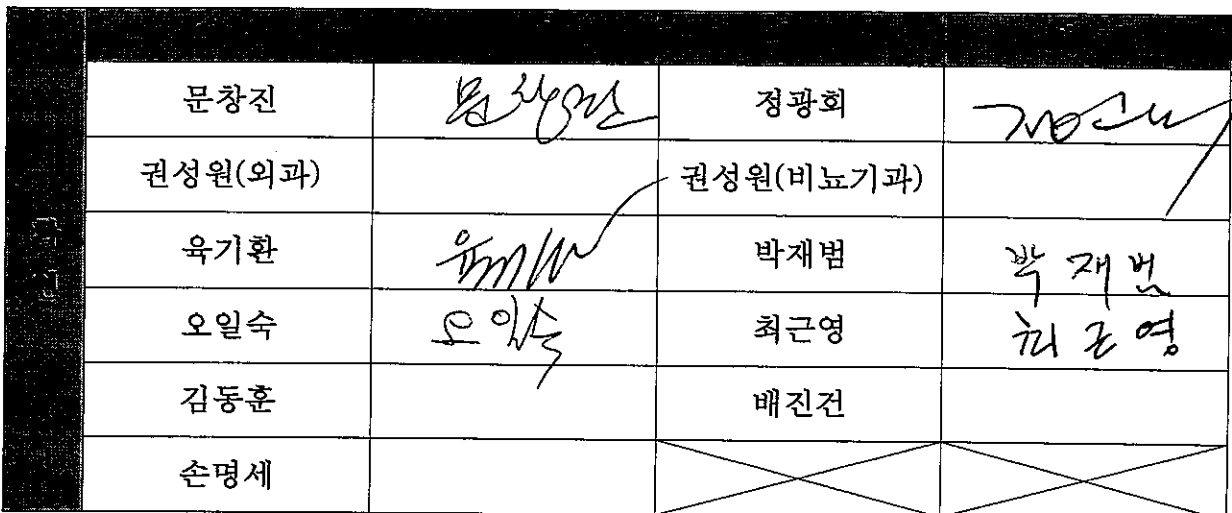 문창진 문창진 정광회
권성원(외과) 권성원(비뇨기과)
육기환 육기환 박재범 박재범
오일숙 오일숙 최근영 최근영
김동훈 배진건
손명세